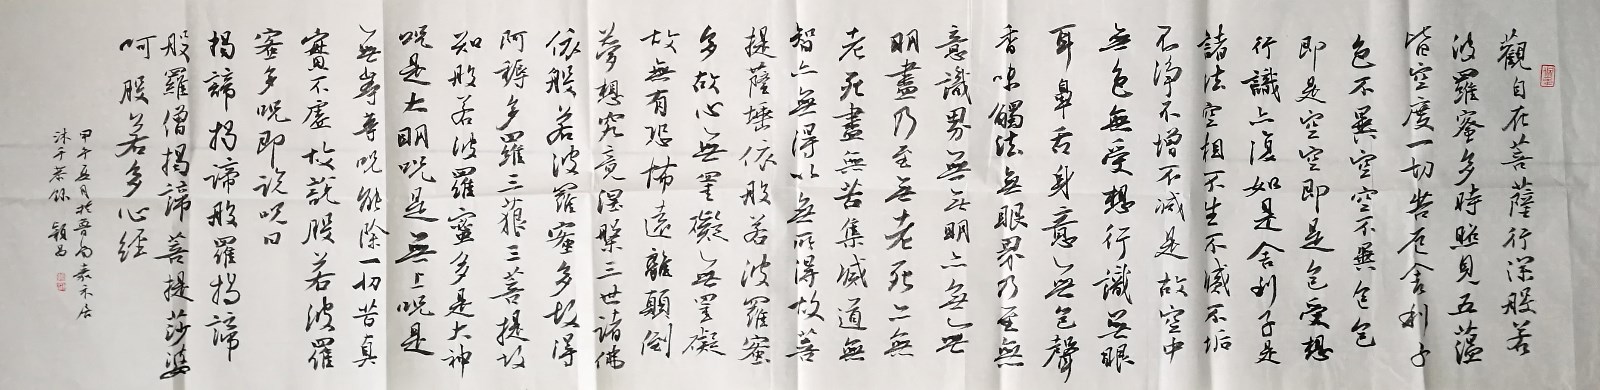 觀自在菩薩行深般若
波羅蜜多時照見五蘊
皆空度一切苦厄舍利子
色不異空空不異色色
即是空空即是色受想
行識亦復如是舍利子是
諸法空相不生不滅不垢
不淨不增不減是故空中
無色無受想行識無眼
耳鼻舌身意無色聲
香味觸法無眼界乃至無
意識界無無明亦無無
明盡乃至無老死亦無
老死盡無苦集滅道無
智亦無得以無所得故菩
提薩埵依般若波羅蜜
多故心無罣礙無罣礙
故無有恐怖遠離顛倒
夢想究竟涅槃三世諸佛
依般若波羅蜜多故得
阿耨多羅三藐三菩提故
知般若波羅蜜多是大神
咒是大明咒是無上咒是
無等等咒能除一切苦真
實不虛故說般若波羅
蜜多咒即說咒曰
揭諦揭諦般羅揭諦
般羅僧揭諦菩提莎婆
呵般若多心經
甲午五月於
沐手恭錄